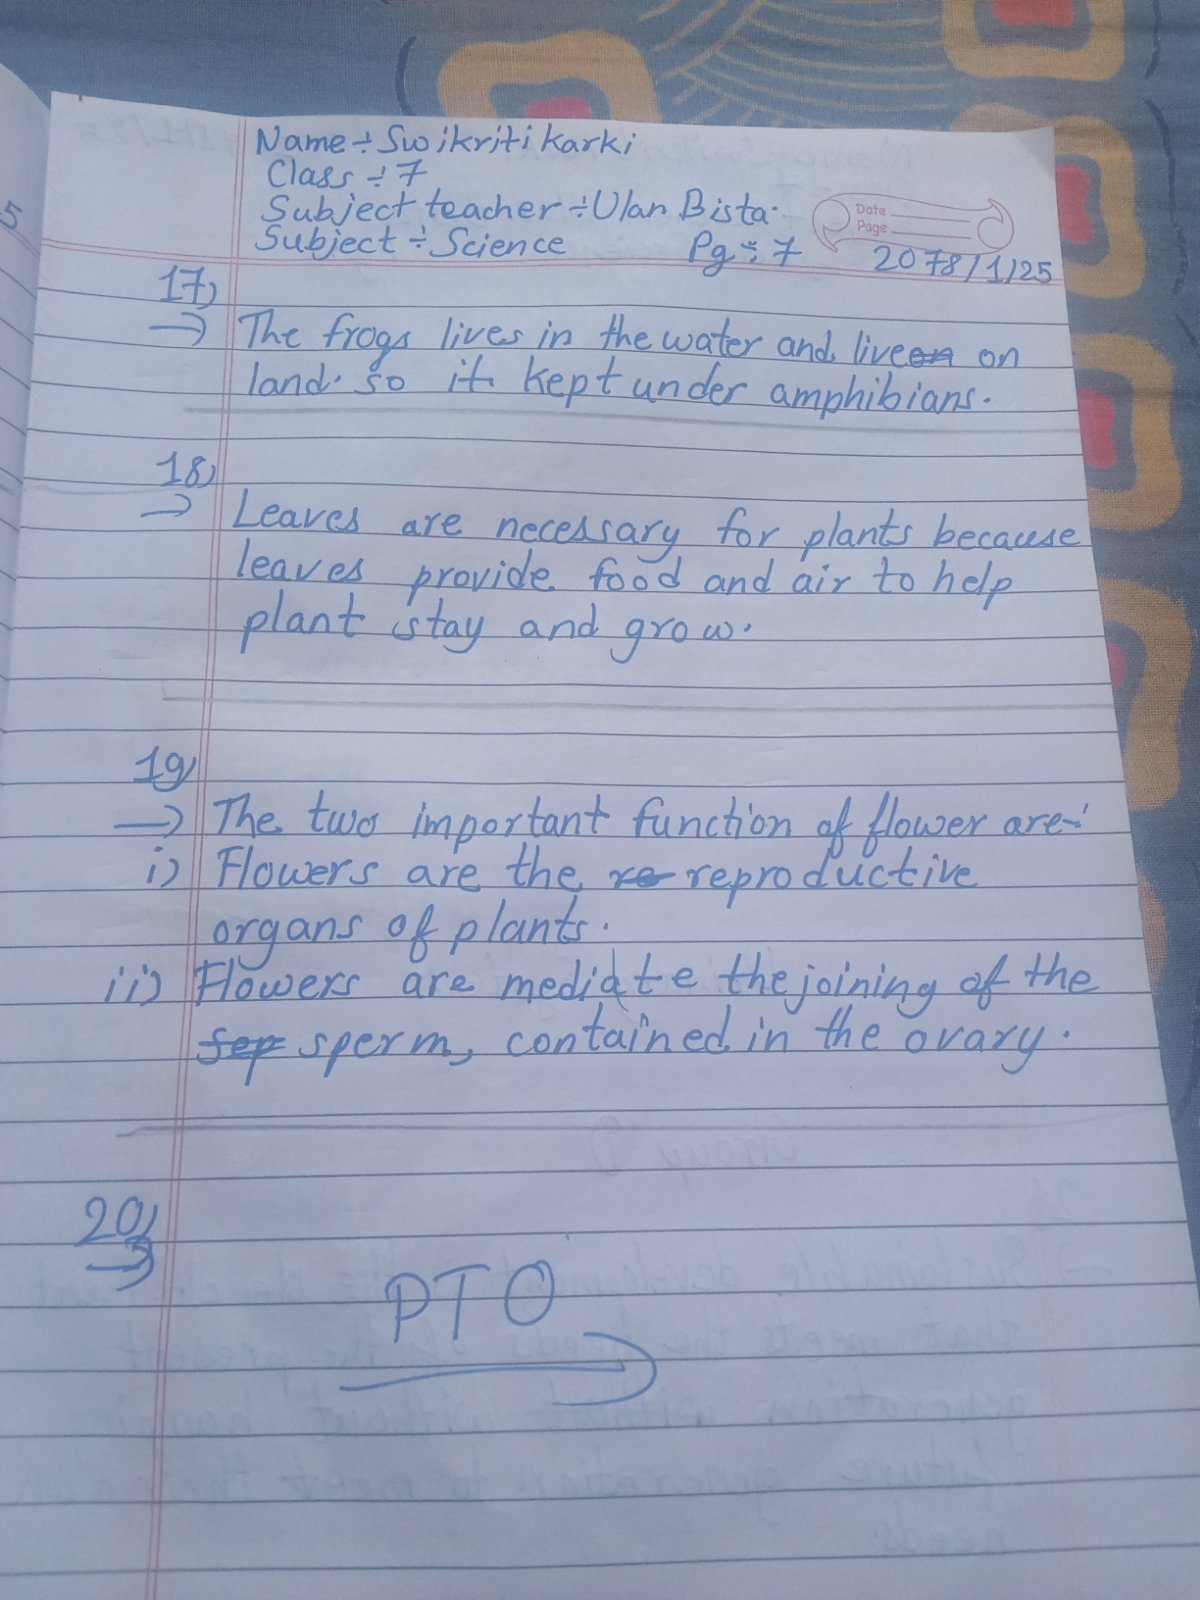 Name ÷ Swikriti Karki
Class ÷ 7
Subject teacher ÷ Ulan Bista.
Date
Page
Subject ÷ Science Pg ÷ 7 2078/1/25
17)
→ The frogs lives in the water and live on
land. so it kept under amphibians.
18)
→ Leaves are necessary for plants because
leaves provide food and air to help
plant stay and grow.
19)
→ The two important function of flower are-
i) Flowers are the reproductive
organs of plants.
ii) Flowers are mediate the joining of the
sperm, contained in the ovary.
20)
→
PTO
5